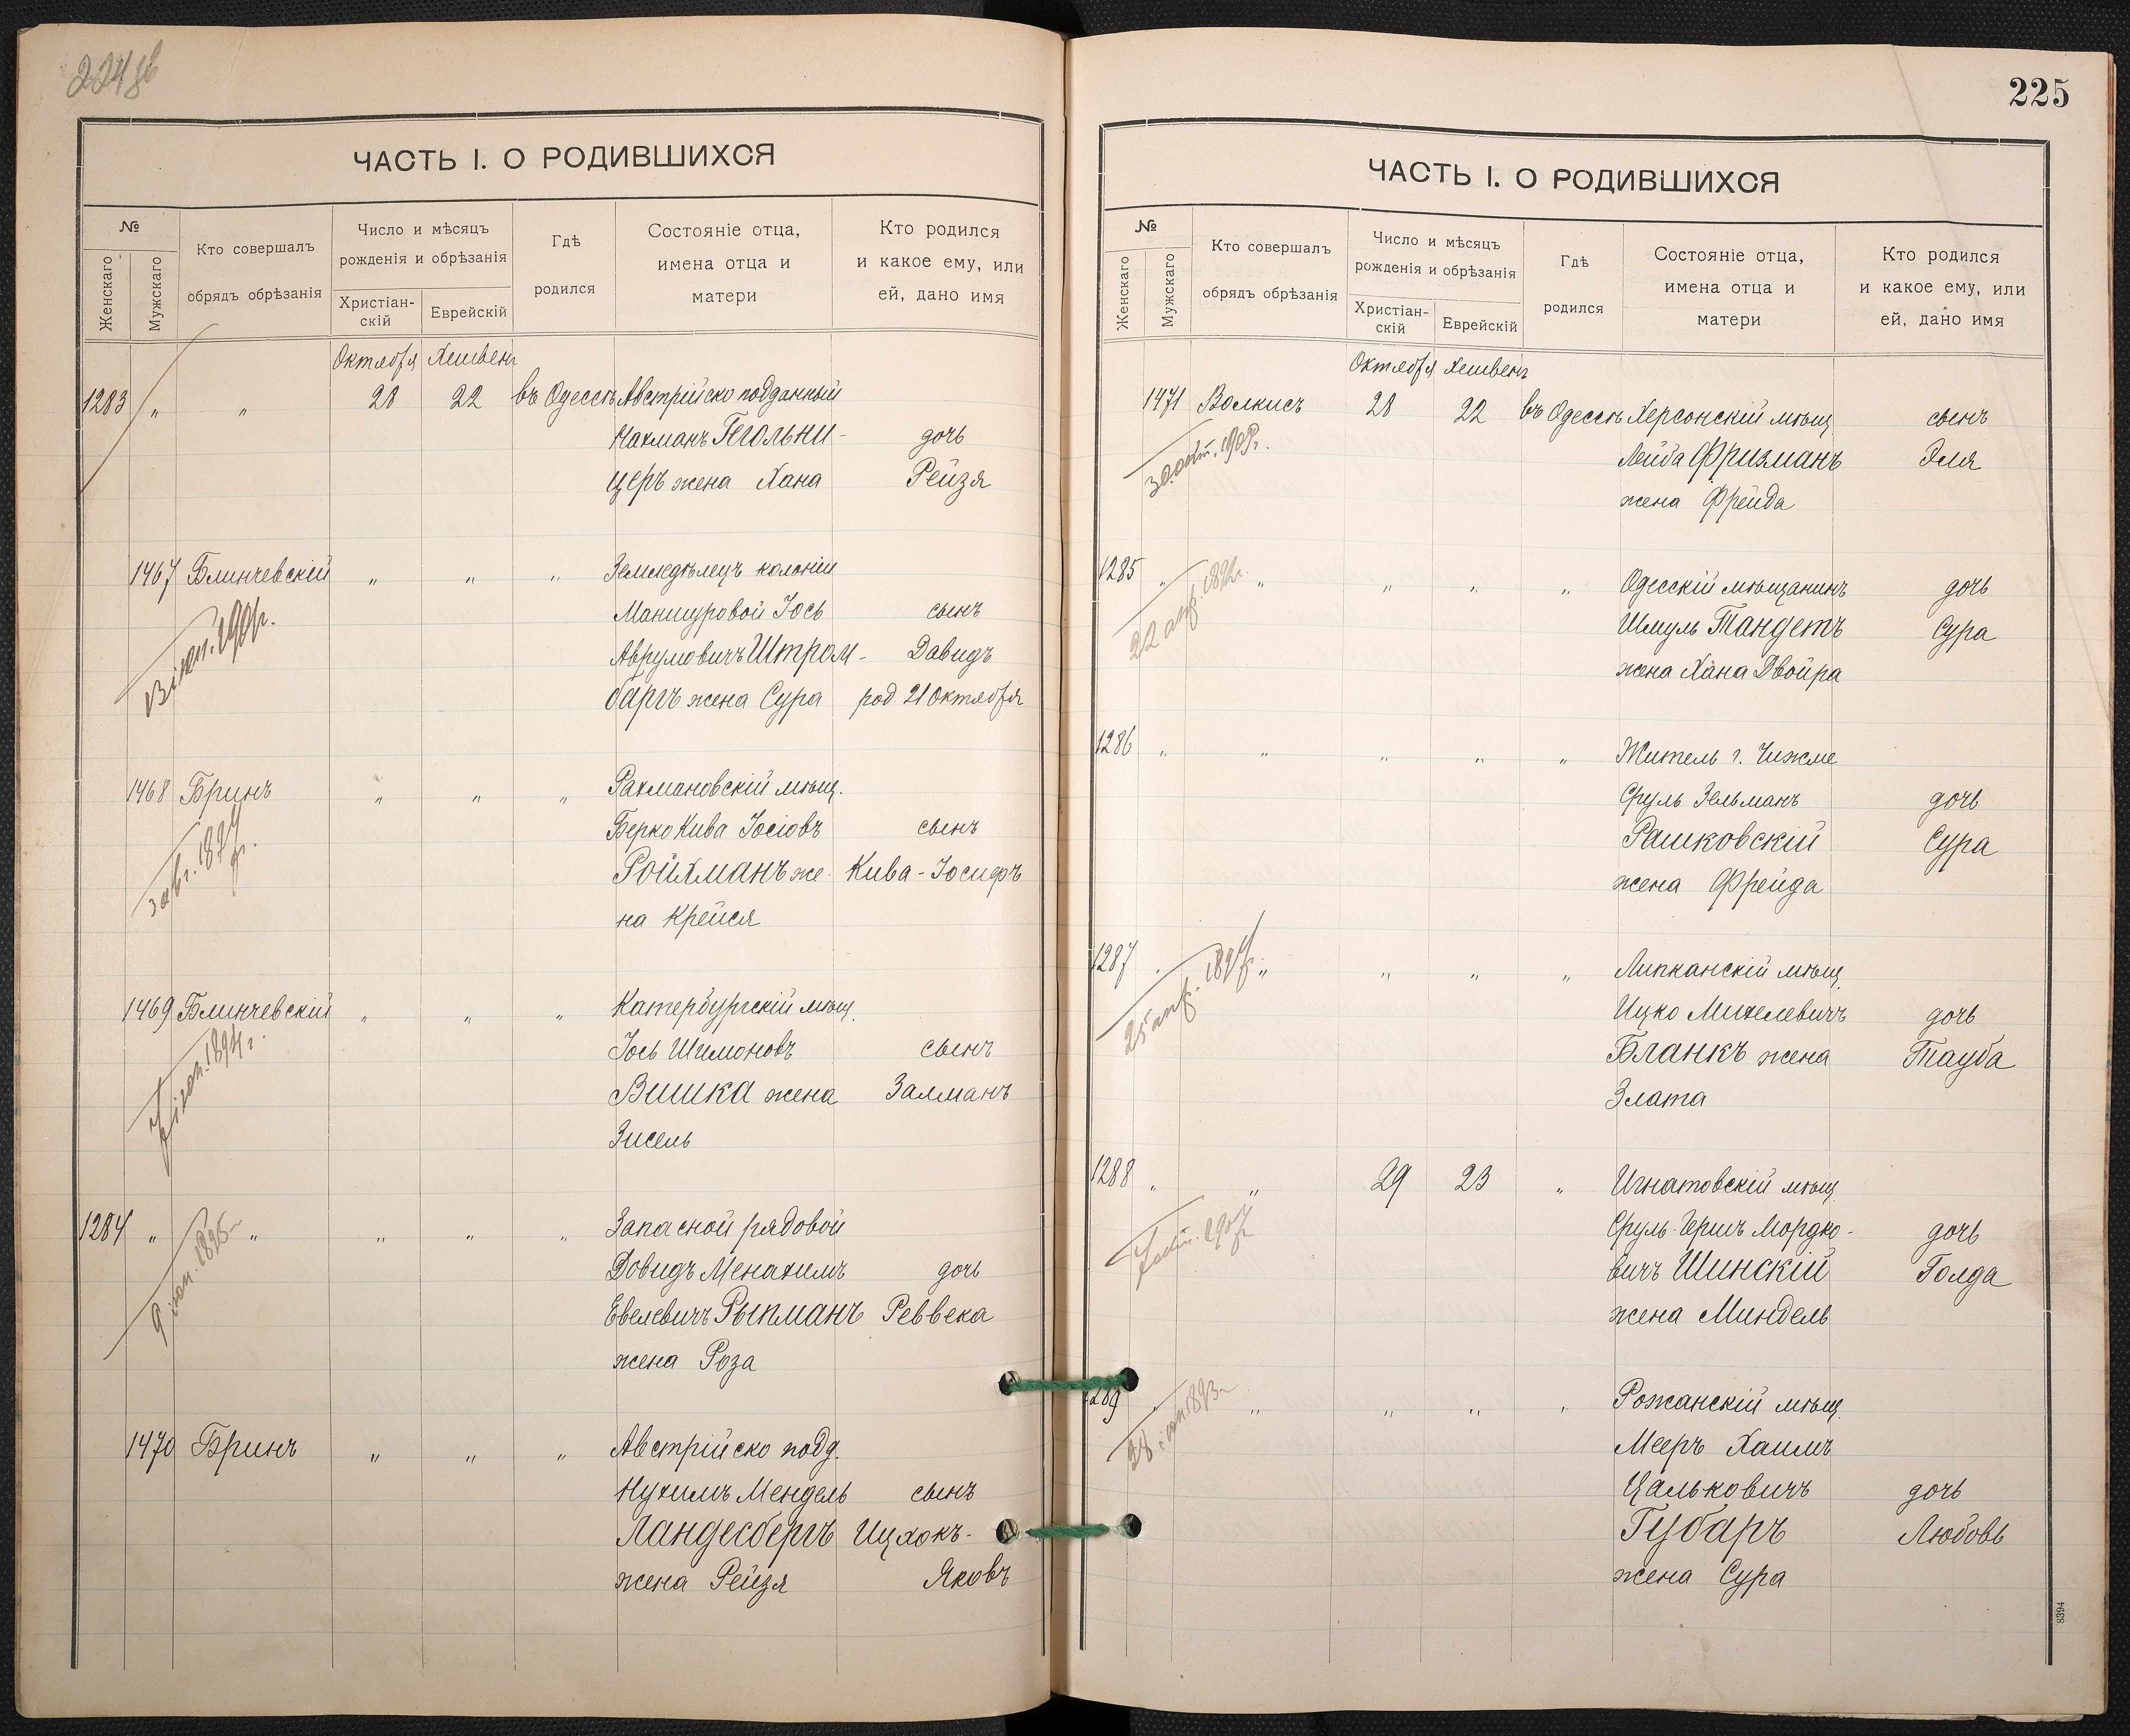 224 об
ЧАСТЬ I. О РОДИВШИХСЯ
№
Женскаго
Мужскаго
Кто совершалъ
обрядъ обрѣзанія
Число и мѣсяцъ
рожденія и обрѣзанія
Христіан-
скій
Еврейскій
Гдѣ
родился
Состояніе отца,
имена отца и
матери
Кто родился
и какое ему, или
ей, дано имя
Октября Хешвенъ
1283 " " 28 22 въ Одессѣ Австрійско подданный
Нахманъ Гегольни- дочь
церъ жена Хана Рейзя
1467 Блинчевскій " " " Земледѣлецъ колоніи
Маншуровой Іось сынъ
Аврумовичъ Штром- Давидъ
баргъ жена Сура род. 21 Октября
1468 Бринъ " " " Рахмановскій мѣщ.
Берко Кива Іосіовъ сынъ
Ройхманъ же- Кива-Іосифъ
на Крейся
1469 Блинчевскій " " " Катербургскій мѣщ.
Іось Шимоновъ сынъ
Вишка жена Залманъ
Зисель
1284 " " " " " Запасной рядовой
9 іюн. 1895 г.
Довидъ Менахимъ дочь
Евелевичъ Рыпманъ Реввека
жена Роза
1470 Бринъ " " " Австрійско подд.
Нухимъ Мендель сынъ
Ландесбергъ Ицхокъ-
жена Рейзя Яковъ
225
ЧАСТЬ I. О РОДИВШИХСЯ
№
Женскаго
Мужскаго
Кто совершалъ
обрядъ обрѣзанія
Число и мѣсяцъ
рожденія и обрѣзанія
Христіан-
скій
Еврейскій
Гдѣ
родился
Состояніе отца,
имена отца и
матери
Кто родился
и какое ему, или
ей, дано имя
Октября Хешвенъ
1471 Волкисъ 28 22 въ Одессѣ Херсонскій мѣщ. сынъ
30 окт. 1909 г.
Лейба Фризманъ Эля
жена Фрейда
1285 " " " " " Одесскій мѣщанинъ дочь
22 апр. 1892 г.
Шмуль Тандетъ Сура
жена Хана Двойра
1286 " " " " " Житель г. Чижме
Сруль Зельманъ дочь
Рашковскій Сура
жена Фрейда
1287 " " " " " Липканскій мѣщ.
25 апр. 1897 г.
Ицко Михелевичъ дочь
Бланкъ жена Тауба
Злата
1288 " " 29 23 " Игнатовскій мѣщ.
Сруль-Гершъ Мордко- дочь
вичъ Шинскій Голда
жена Миндель
1289 " " " " " Рожанскій мѣщ.
Мееръ Хаимъ
Цальковичъ дочь
Губаръ Любовь
жена Сура
8394